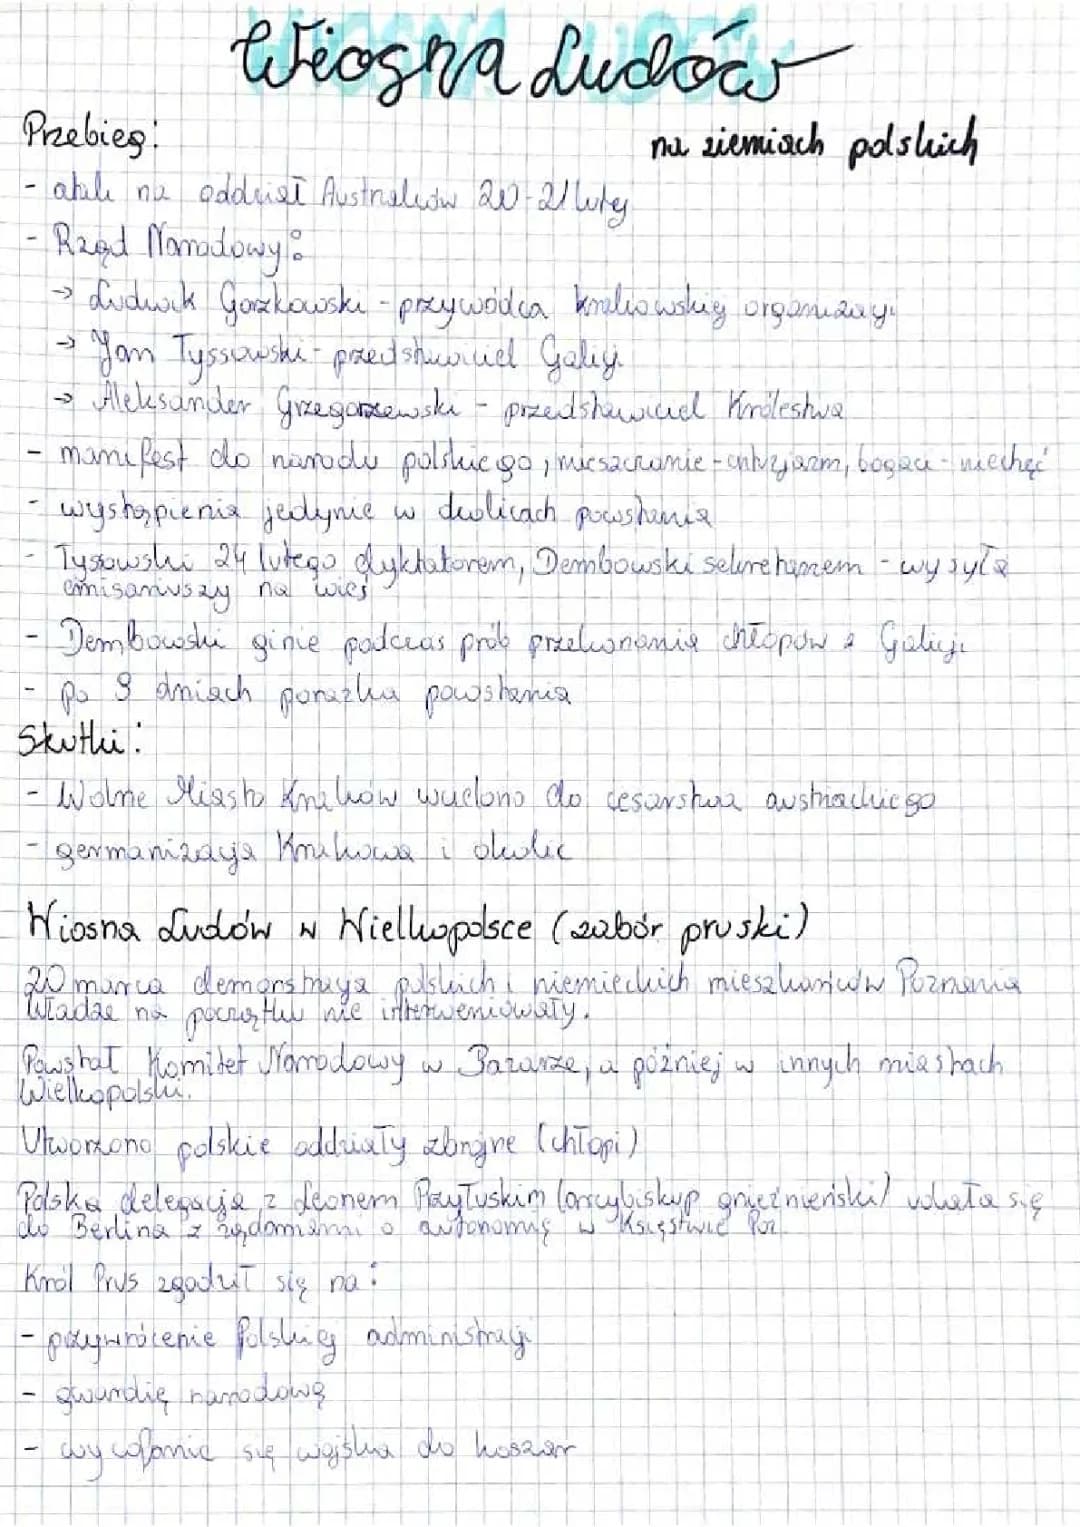 Wiosna Ludów
na ziemiach polskich
Przebieg:
- atak na oddział Austriaków 20-21 luty
- Rząd Narodowy:
→ Ludwik Gorzkowski - przywódca krakowskiej organizacji
→ Jan Tyssowski - przedstawiciel Galicji
→ Aleksander Grzegorzewski - przedstawiciel Królestwa
- manifest do narodu polskiego, mieszczanie - entuzjazm, bogaci - niechęć
- wystąpienia jedynie w okolicach powstania
- Tyssowski 24 lutego dyktatorem, Dembowski sekretarzem - wysyła
emisariuszy na wieś
- Dembowski ginie podczas prób przekonania chłopów z Galicji
- po 9 dniach porażka powstania
Skutki:
- Wolne Miasto Kraków wcielono do cesarstwa austriackiego
- germanizacja Krakowa i okolic
Wiosna Ludów w Wielkopolsce (zabór pruski)
20 marca demonstracja polskich i niemieckich mieszkańców Poznania
Władze na początku nie interweniowały.
Powstał Komitet Narodowy w Bazarze, a później w innych miastach
Wielkopolski.
Utworzono polskie oddziały zbrojne (chłopi)
Polska delegacja z Leonem Przyłuskim (arcybiskup gnieźnieński) udała się
do Berlina z żądaniami o autonomię w Księstwie Poz.
Król Prus zgodził się na:
- przywrócenie Polskiej administracji
- gwardię narodową
- wycofanie się wojska do koszar